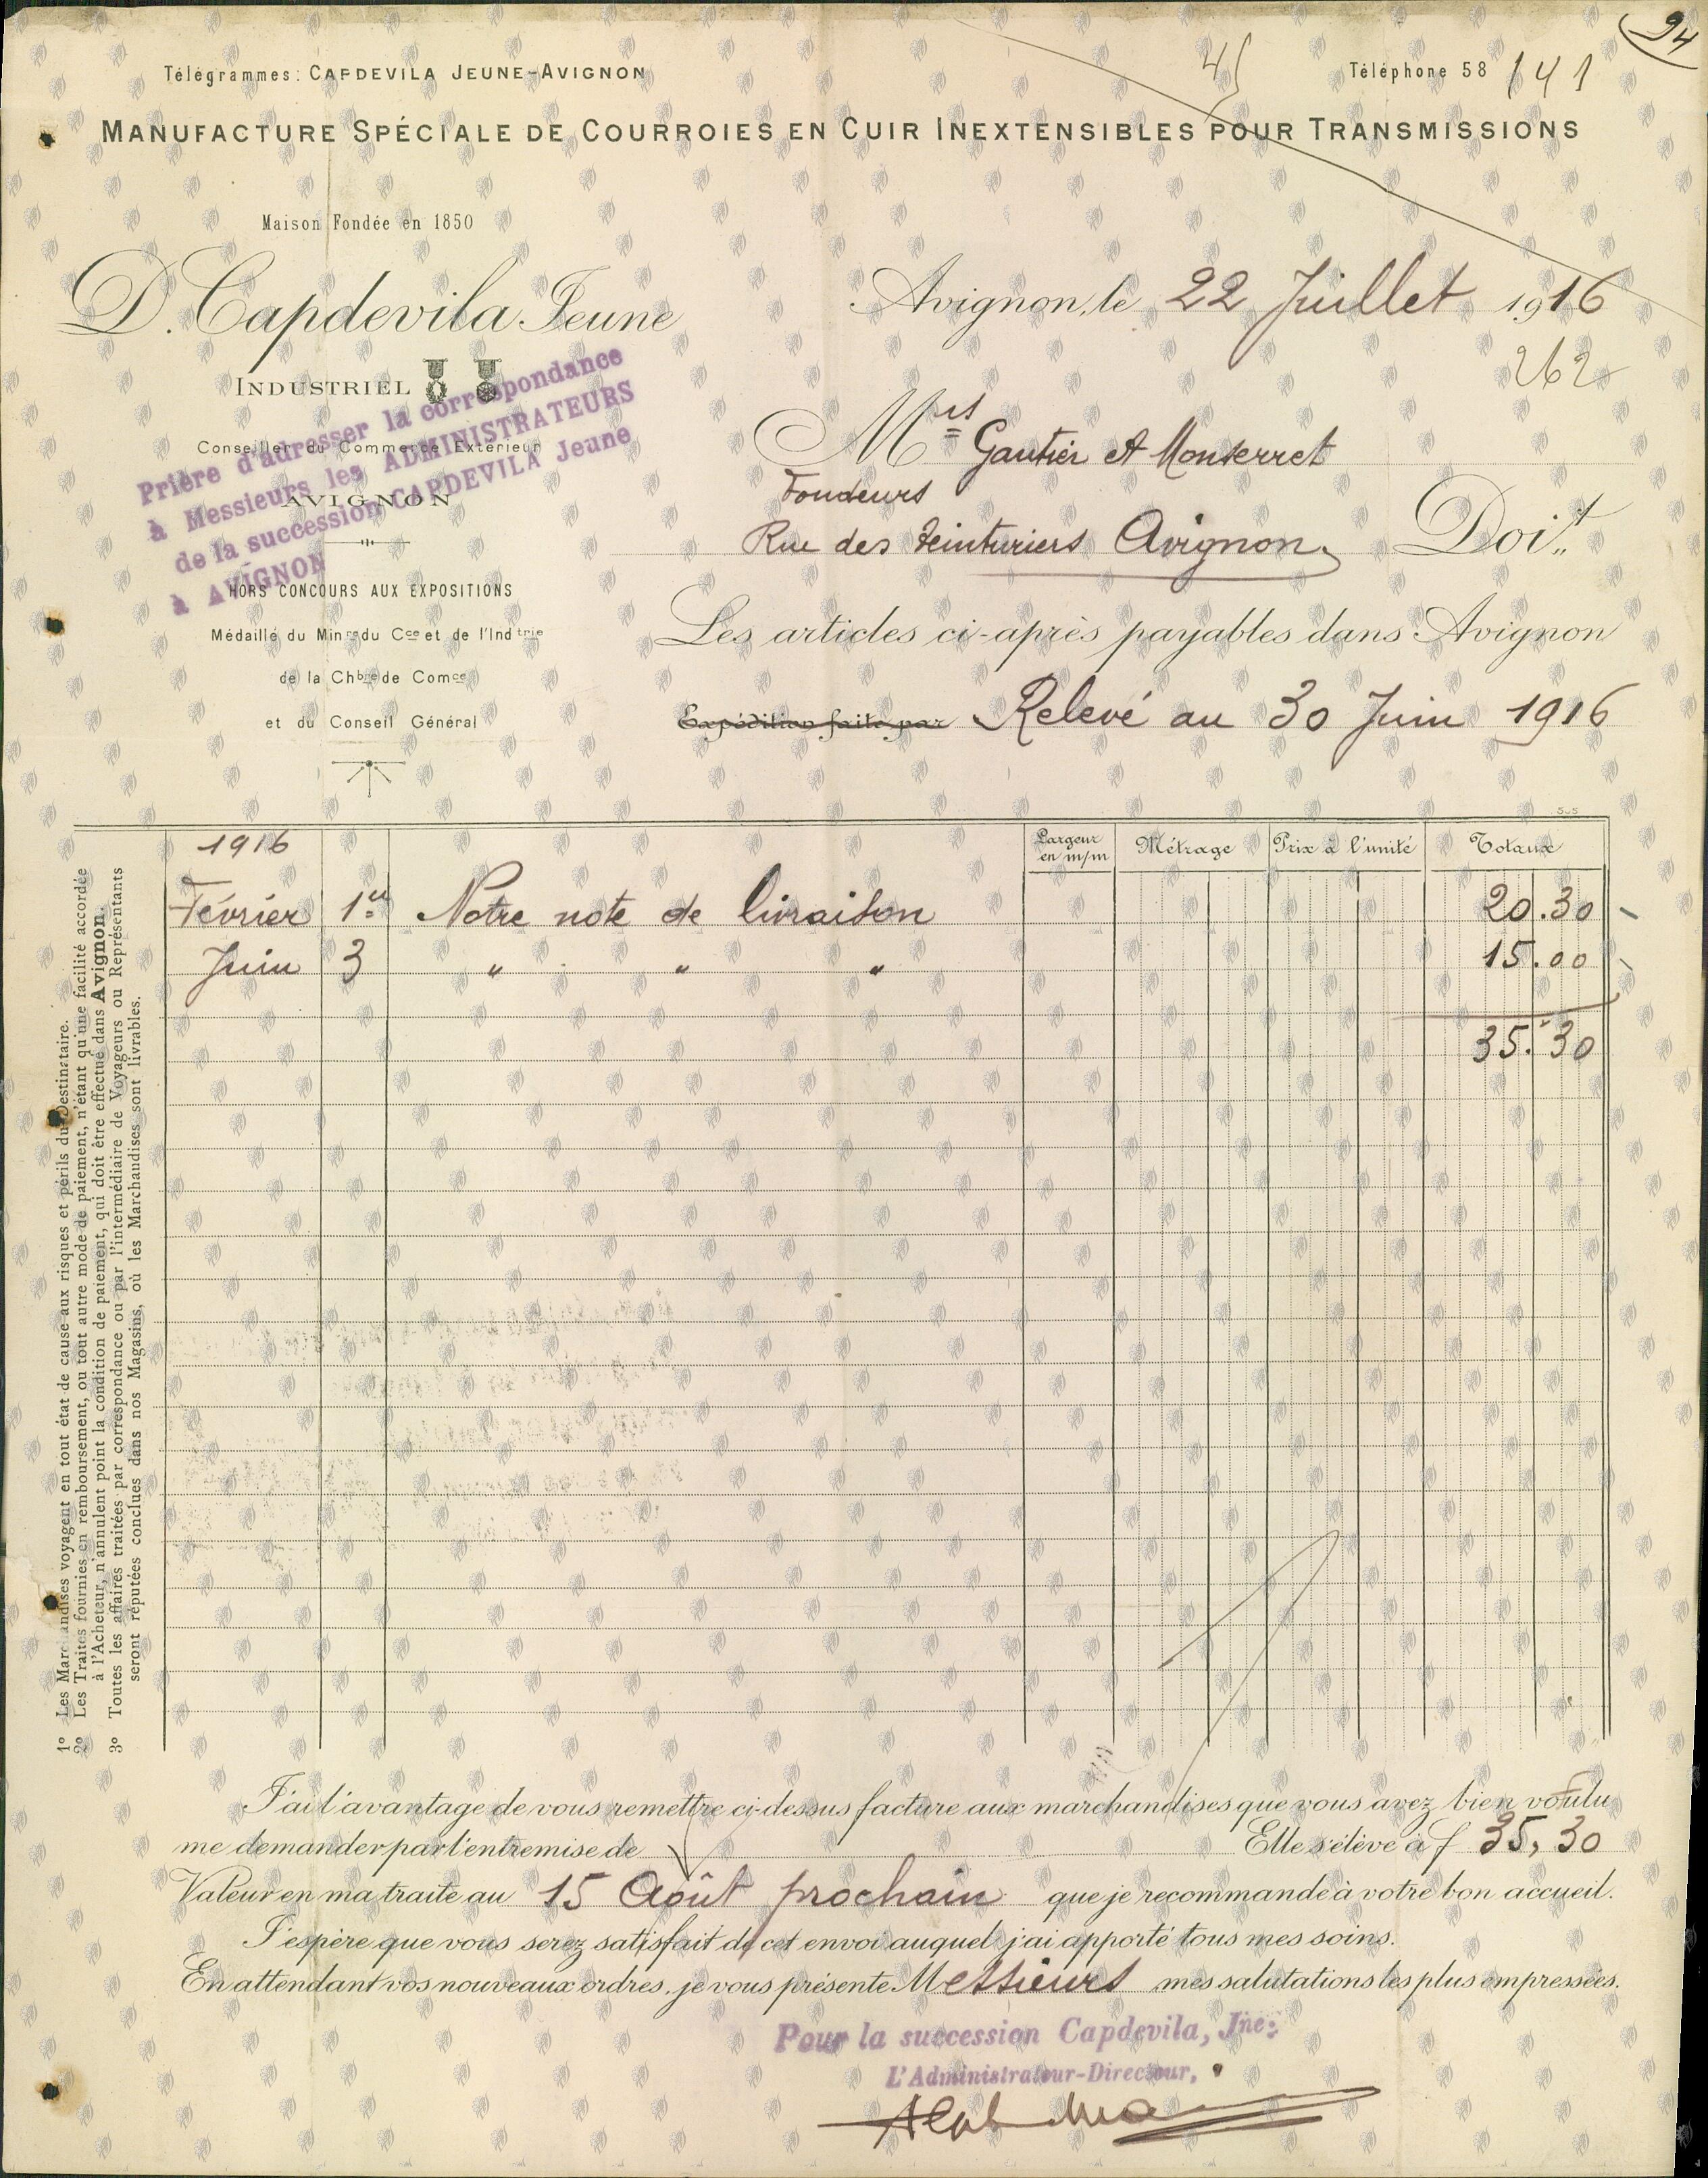 94
Télégrammes: CAPDEVILA JEUNE-AVIGNON
45
Téléphone 58
141
MANUFACTURE SPÉCIALE DE COURROIES EN CUIR INEXTENSIBLES POUR TRANSMISSIONS
Maison Fondée en 1850
D. Capdevila Jeune
INDUSTRIEL
Conseiller du Commerce Extérieur
AVIGNON
Prière d'adresser la correspondance
à Messieurs les ADMINISTRATEURS
de la succession CAPDEVILA Jeune
à AVIGNON
HORS CONCOURS AUX EXPOSITIONS
Médaillé du Minre du Cce et de l'Indtrie
de la Chbre de Comce
et du Conseil Général
Avignon, le 22 Juillet 1916
262
Mrs Gautier et Monserret
Fondeurs
Rue des Teinturiers Avignon Doit
Les articles ci-après payables dans Avignon
Expédition faite par Relevé au 30 Juin 1916
1916 Largeur en m/m Métrage Prix à l'unité Totaux
Février 1er Notre note de livraison 20.30
Juin 3 " " " 15.00
35.30
1º Les Marchandises voyagent en tout état de cause aux risques et périls du Destinataire.
2º Les Traites fournies en remboursement, ou tout autre mode de paiement, n'étant qu'une facilité accordée
à l'Acheteur, n'annulent point la condition de paiement, qui doit être effectué dans Avignon.
3º Toutes les affaires traitées par correspondance ou par l'intermédiaire de Voyageurs ou Représentants
seront réputées conclues dans nos Magasins, où les Marchandises sont livrables.
J'ai l'avantage de vous remettre ci-dessus facture aux marchandises que vous avez bien voulu
me demander par l'entremise de Elle s'élève à f 35,30
Valeur en ma traite au 15 Août prochain que je recommande à votre bon accueil.
J'espère que vous serez satisfait de cet envoi auquel j'ai apporté tous mes soins.
En attendant vos nouveaux ordres, je vous présente Messieurs mes salutations les plus empressées.
Pour la succession Capdevila, Jne:
L'Administrateur-Directeur,